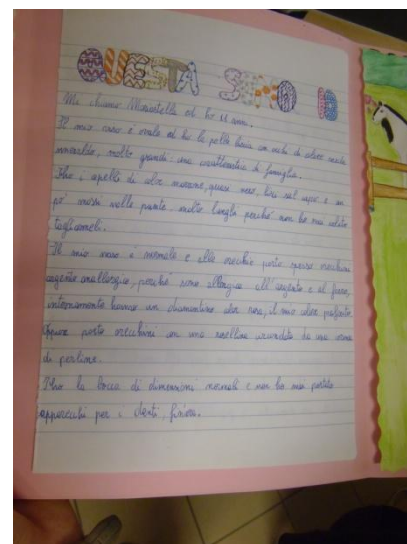 QUESTA SONO IO
Mi chiamo Maristella ed ho 11 anni.
Il mio viso è ovale ed ho la pelle liscia occhi di colore verde
smeraldo, molto grandi: una caratteristica di famiglia.
Ho i capelli di color marrone, quasi nero, lisci sul capo e un
po' mossi sulle punte, molto lunghi perché non ho mai voluto
tagliarmeli.
Il mio naso è normale e alle orecchie porto spesso orecchini
argento anallergico, perché sono allergica all'argento e al ferro,
internamente hanno un diamantino color rosa, il mio color preferito.
Oppure porto orecchini con una rosellina circondata da una corona
di perline.
Ho la bocca di dimensioni normali e non ho mai portato
apparecchi per i denti, finora.